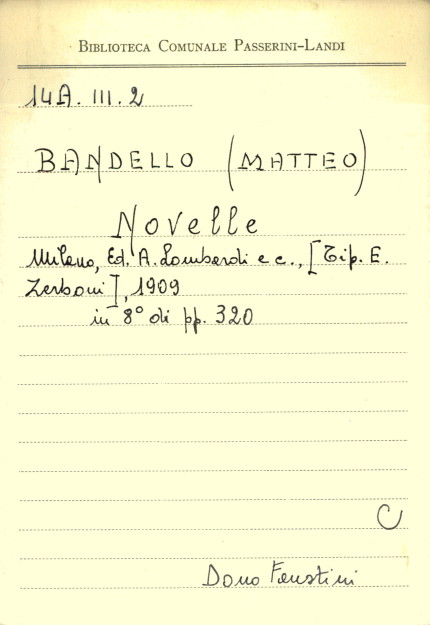 BIBLIOTECA COMUNALE PASSERINI-LANDI
14A. III. 2
BANDELLO (MATTEO)
Novelle
Milano, Ed. A. Lombardi e c., [Tip. E.
Zerboni], 1909
in 8° di pp. 320
C
Dono Faustini